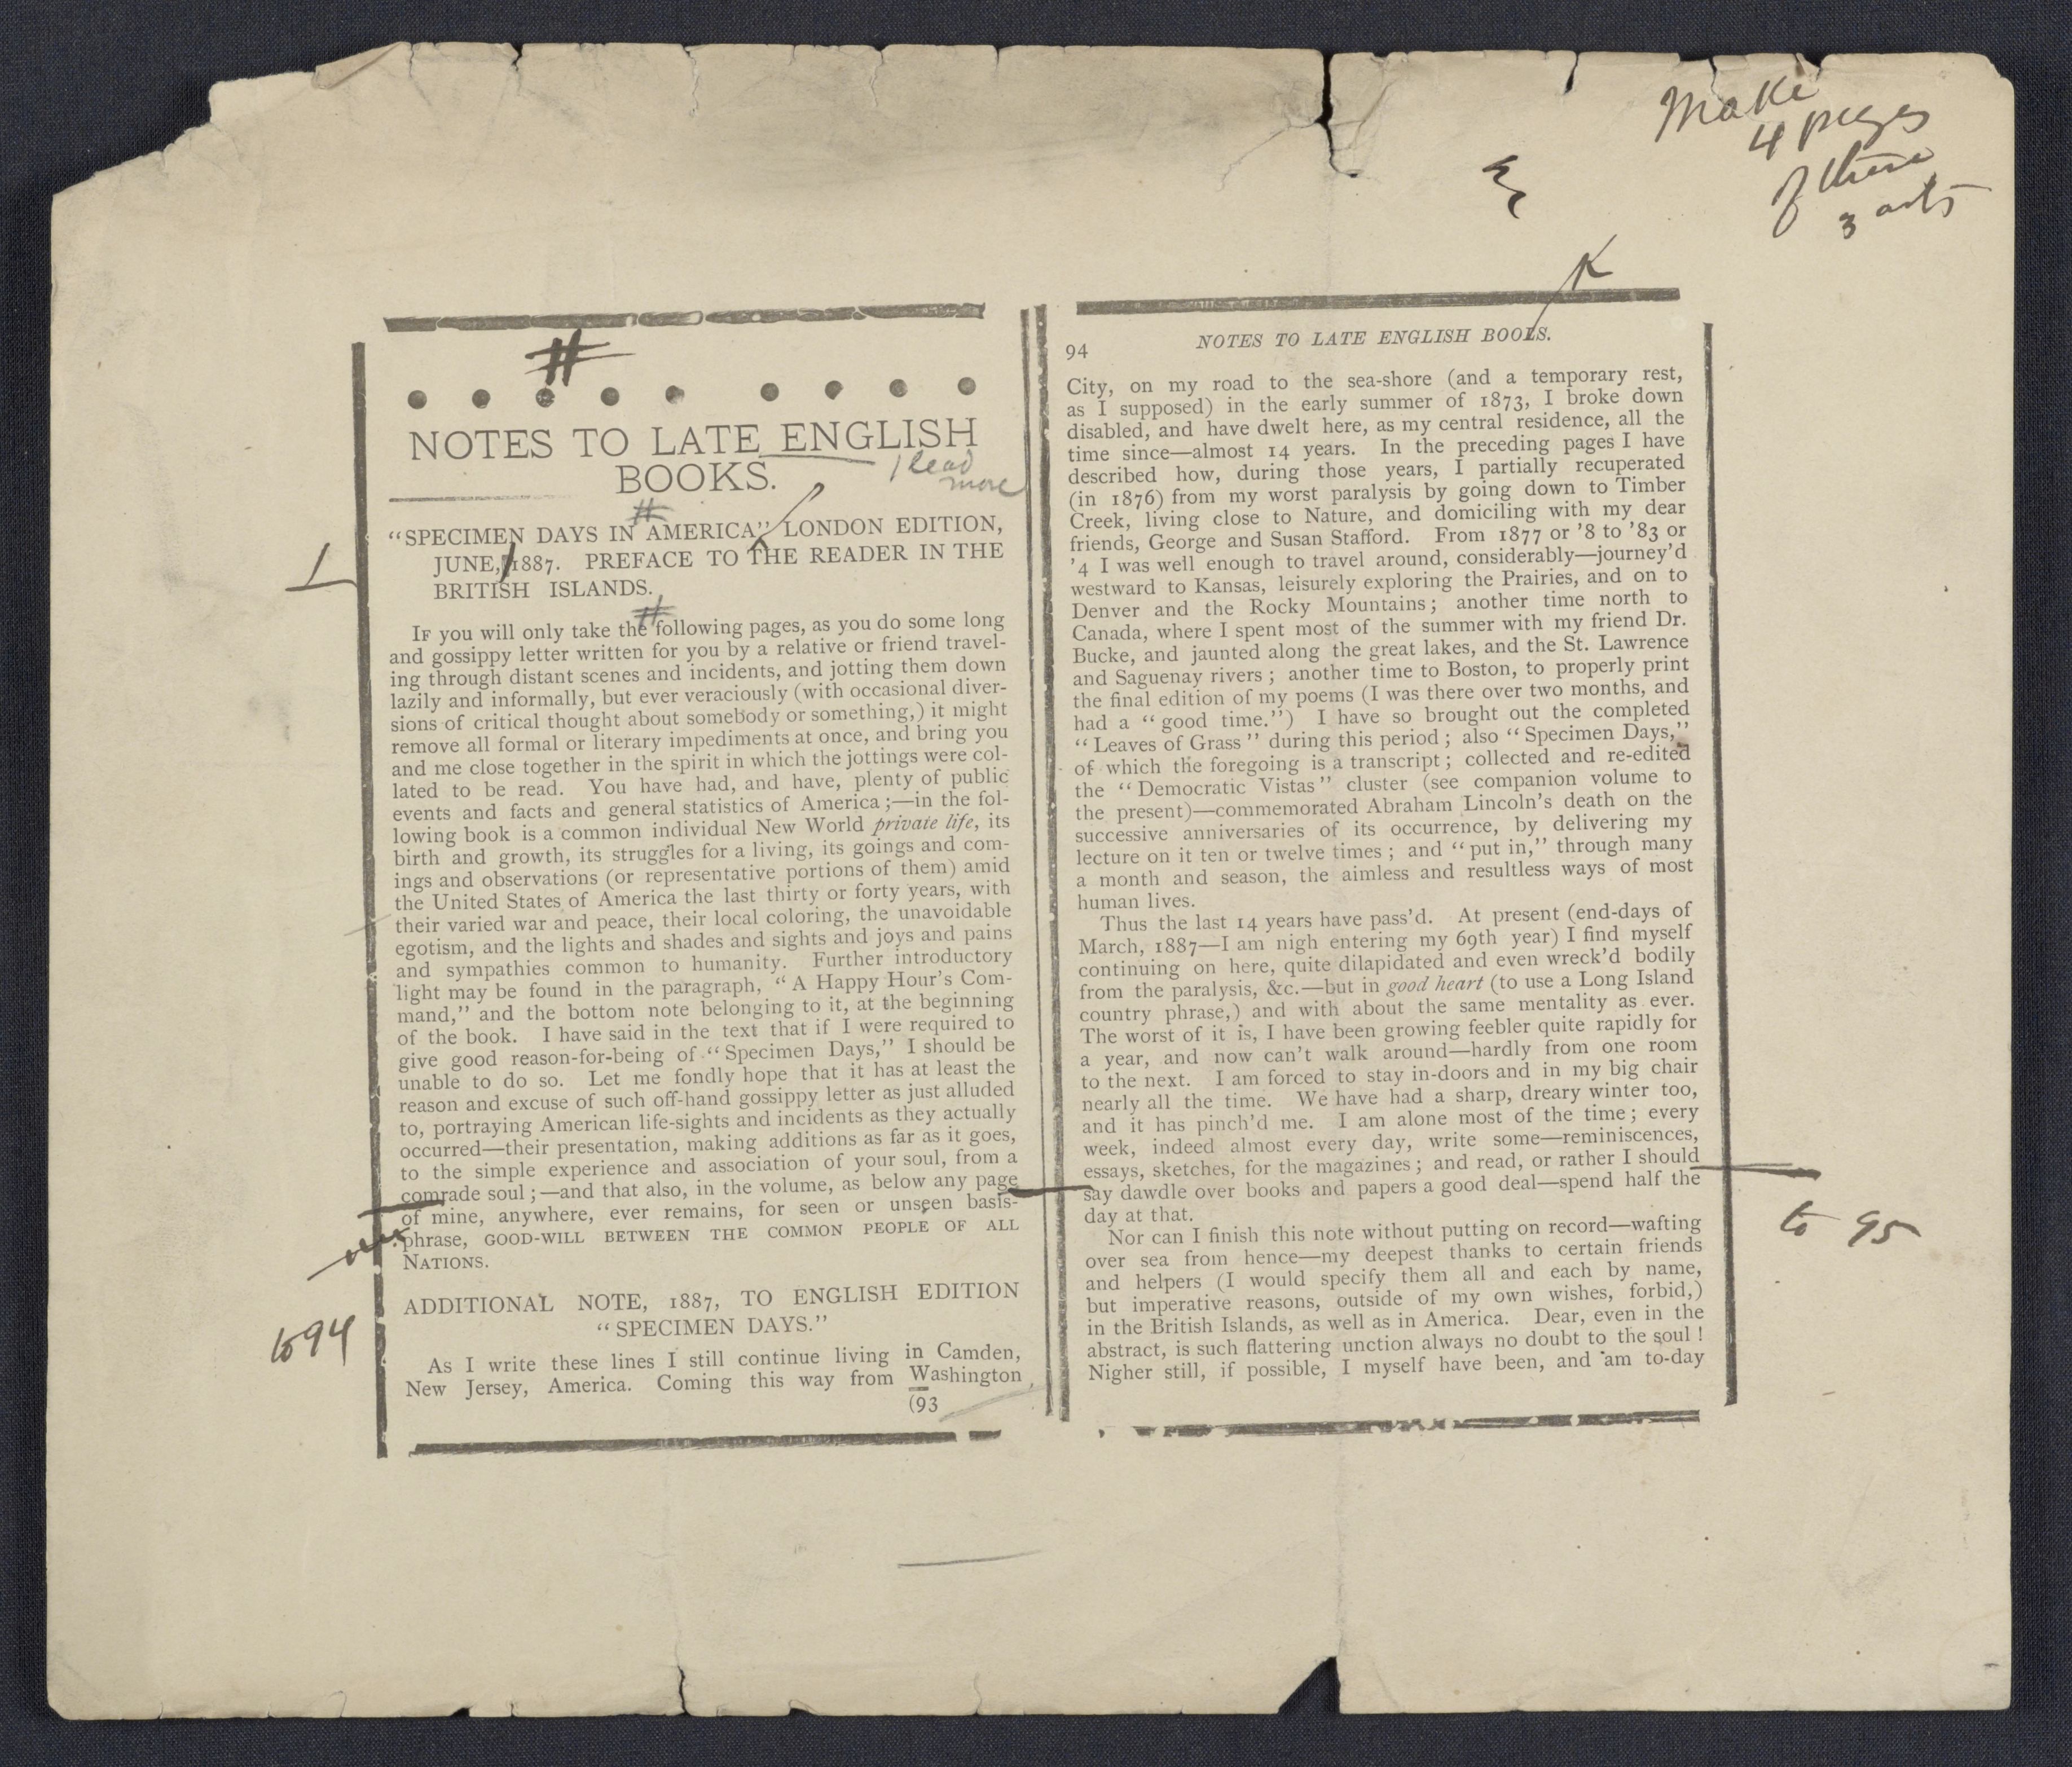 Make
4 pages
of these
3
K
#
NOTES TO LATE ENGLISH
BOOKS.
1 lead
more
#
"SPECIMEN DAYS IN AMERICA," LONDON EDITION,
JUNE, 1887. PREFACE TO THE READER IN THE
BRITISH ISLANDS.
#
IF you will only take the following pages, as you do some long
and gossippy letter written for you by a relative or friend travel-
ing through distant scenes and incidents, and jotting them down
lazily and informally, but ever veraciously (with occasional diver-
sions of critical thought about somebody or something,) it might
remove all formal or literary impediments at once, and bring you
and me close together in the spirit in which the jottings were col-
lated to be read. You have had, and have, plenty of public
events and facts and general statistics of America;—in the fol-
lowing book is a common individual New World private life, its
birth and growth, its struggles for a living, its goings and com-
ings and observations (or representative portions of them) amid
the United States of America the last thirty or forty years, with
their varied war and peace, their local coloring, the unavoidable
egotism, and the lights and shades and sights and joys and pains
and sympathies common to humanity. Further introductory
light may be found in the paragraph, "A Happy Hour's Com-
mand," and the bottom note belonging to it, at the beginning
of the book. I have said in the text that if I were required to
give good reason-for-being of "Specimen Days," I should be
unable to do so. Let me fondly hope that it has at least the
reason and excuse of such off-hand gossippy letter as just alluded
to, portraying American life-sights and incidents as they actually
occurred—their presentation, making additions as far as it goes,
to the simple experience and association of your soul, from a
comrade soul;—and that also, in the volume, as below any page
of mine, anywhere, ever remains, for seen or unseen basis-
phrase, GOOD-WILL BETWEEN THE COMMON PEOPLE OF ALL
NATIONS.
to 94
ADDITIONAL NOTE, 1887, TO ENGLISH EDITION
"SPECIMEN DAYS."
As I write these lines I still continue living in Camden,
New Jersey, America. Coming this way from Washington
(93
94
NOTES TO LATE ENGLISH BOOLS.
City, on my road to the sea-shore (and a temporary rest,
as I supposed) in the early summer of 1873, I broke down
disabled, and have dwelt here, as my central residence, all the
time since—almost 14 years. In the preceding pages I have
described how, during those years, I partially recuperated
(in 1876) from my worst paralysis by going down to Timber
Creek, living close to Nature, and domiciling with my dear
friends, George and Susan Stafford. From 1877 or '8 to '83 or
'4 I was well enough to travel around, considerably—journey'd
westward to Kansas, leisurely exploring the Prairies, and on to
Denver and the Rocky Mountains; another time north to
Canada, where I spent most of the summer with my friend Dr.
Bucke, and jaunted along the great lakes, and the St. Lawrence
and Saguenay rivers; another time to Boston, to properly print
the final edition of my poems (I was there over two months, and
had a "good time.") I have so brought out the completed
"Leaves of Grass" during this period; also "Specimen Days,"
of which the foregoing is a transcript; collected and re-edited
the "Democratic Vistas" cluster (see companion volume to
the present)—commemorated Abraham Lincoln's death on the
successive anniversaries of its occurrence, by delivering my
lecture on it ten or twelve times; and "put in," through many
a month and season, the aimless and resultless ways of most
human lives.
Thus the last 14 years have pass'd. At present (end-days of
March, 1887—I am nigh entering my 69th year) I find myself
continuing on here, quite dilapidated and even wreck'd bodily
from the paralysis, &c.—but in good heart (to use a Long Island
country phrase,) and with about the same mentality as ever.
The worst of it is, I have been growing feebler quite rapidly for
a year, and now can't walk around—hardly from one room
to the next. I am forced to stay in-doors and in my big chair
nearly all the time. We have had a sharp, dreary winter too,
and it has pinch'd me. I am alone most of the time; every
week, indeed almost every day, write some—reminiscences,
essays, sketches, for the magazines; and read, or rather I should
say dawdle over books and papers a good deal—spend half the
day at that.
to 95
Nor can I finish this note without putting on record—wafting
over sea from hence—my deepest thanks to certain friends
and helpers (I would specify them all and each by name,
but imperative reasons, outside of my own wishes, forbid,)
in the British Islands, as well as in America. Dear, even in the
abstract, is such flattering unction always no doubt to the soul!
Nigher still, if possible, I myself have been, and am to-day